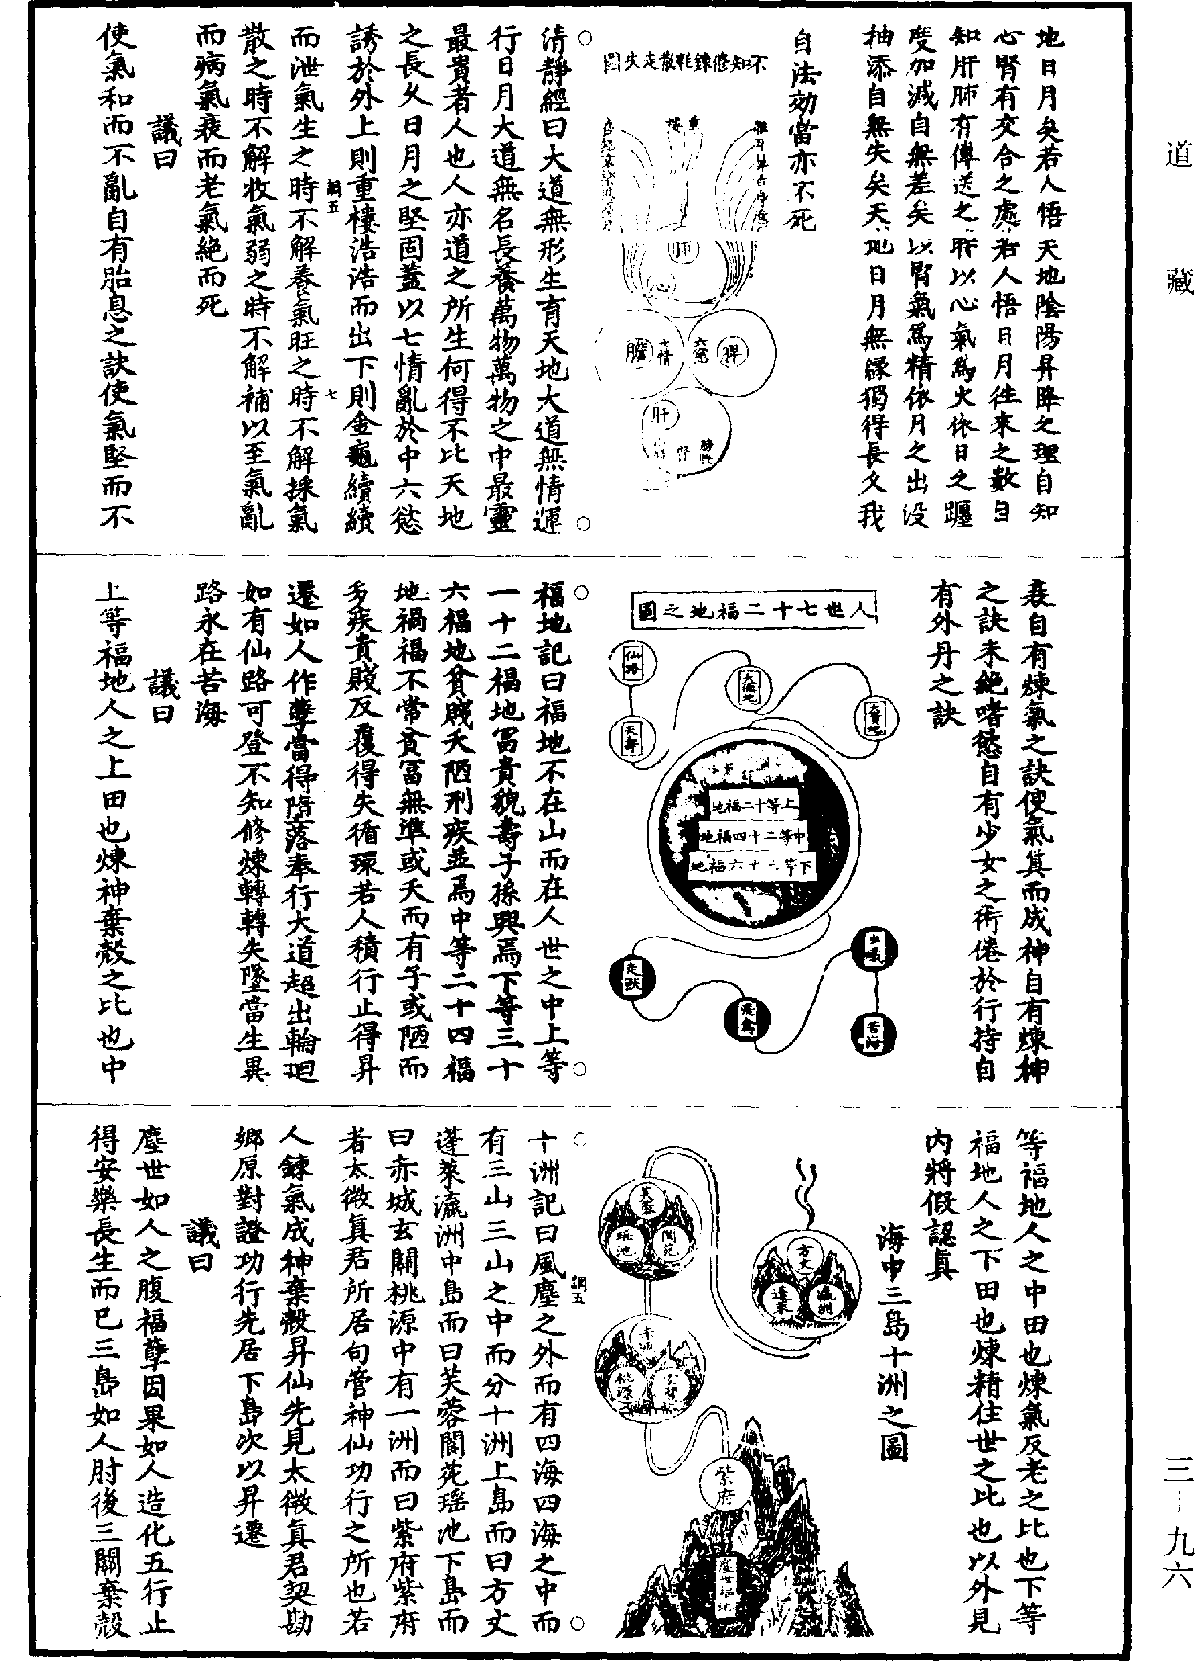 道藏
三—九六
地日月矣若人悟天地陰陽昇降之理自知
心腎有交合之處若人悟日月往來之數自
知肝肺有傳送之時以心氣為火依日之躔
度加減自無差矣以腎氣為精依月之出没
抽添自無失矣天地日月無緣獨得長久我
自法効當亦不死
不知修鍊耗散走失圖
重樓
肺
膽
七情
六慾
脾
肝
腎
膀胱
清靜經曰大道無形生育天地大道無情運
行日月大道無名長養萬物萬物之中最靈
最貴者人也人亦道之所生何得不比天地
之長久日月之堅固蓋以七情亂於中六慾
誘於外上則重樓浩浩而出下則金龜續續
而泄氣生之時不解養氣旺之時不解採氣
散之時不解收氣弱之時不解補以至氣亂
而病氣衰而老氣絕而死
議曰
使氣和而不亂自有胎息之訣使氣堅而不
調五
七
衰自有煉氣之訣使氣真而成神自有煉神
之訣未絕嗜慾自有少女之術倦於行持自
有外丹之訣
人世七十二福地之圖
仙路
天壽
大福地
上等十二福地
中等二十四福地
下等三十六福地
飛禽
苦海
福地記曰福地不在山而在人世之中上等
一十二福地冨貴貌壽子孫興焉下等三十
六福地貧賤夭陋刑疾並焉中等二十四福
地禍福不常貧冨無準或夭而有子或陋而
多疾貴賤反覆得失循環若人積行止得昇
遷如人作孽當得隋落奉行大道超出輪迴
如有仙路可登不知修煉轉轉失墜當生異
路永在苦海
議曰
上等福地人之上田也煉神棄殼之比也中
等福地人之中田也煉氣反老之比也下等
福地人之下田也煉精住世之比也以外見
内將假認真
海中三島十洲之圖
方丈
蓬萊
瀛洲
芙蓉
閬苑
瑤池
赤城
玄關
桃源
紫府
十洲記曰風塵之外而有四海四海之中而
有三山三山之中而分十洲上島而曰方丈
蓬萊瀛洲中島而曰芙蓉閬苑瑤池下島而
曰赤城玄關桃源中有一洲而曰紫府紫府
者太微真君所居句管神仙功行之所也若
人鍊氣成神棄殼昇仙先見太微真君契勘
鄉原對證功行先居下島次以昇遷
議曰
塵世如人之腹福孽因果如人造化五行止
得安樂長生而已三島如人肘後三關棄殼
調五